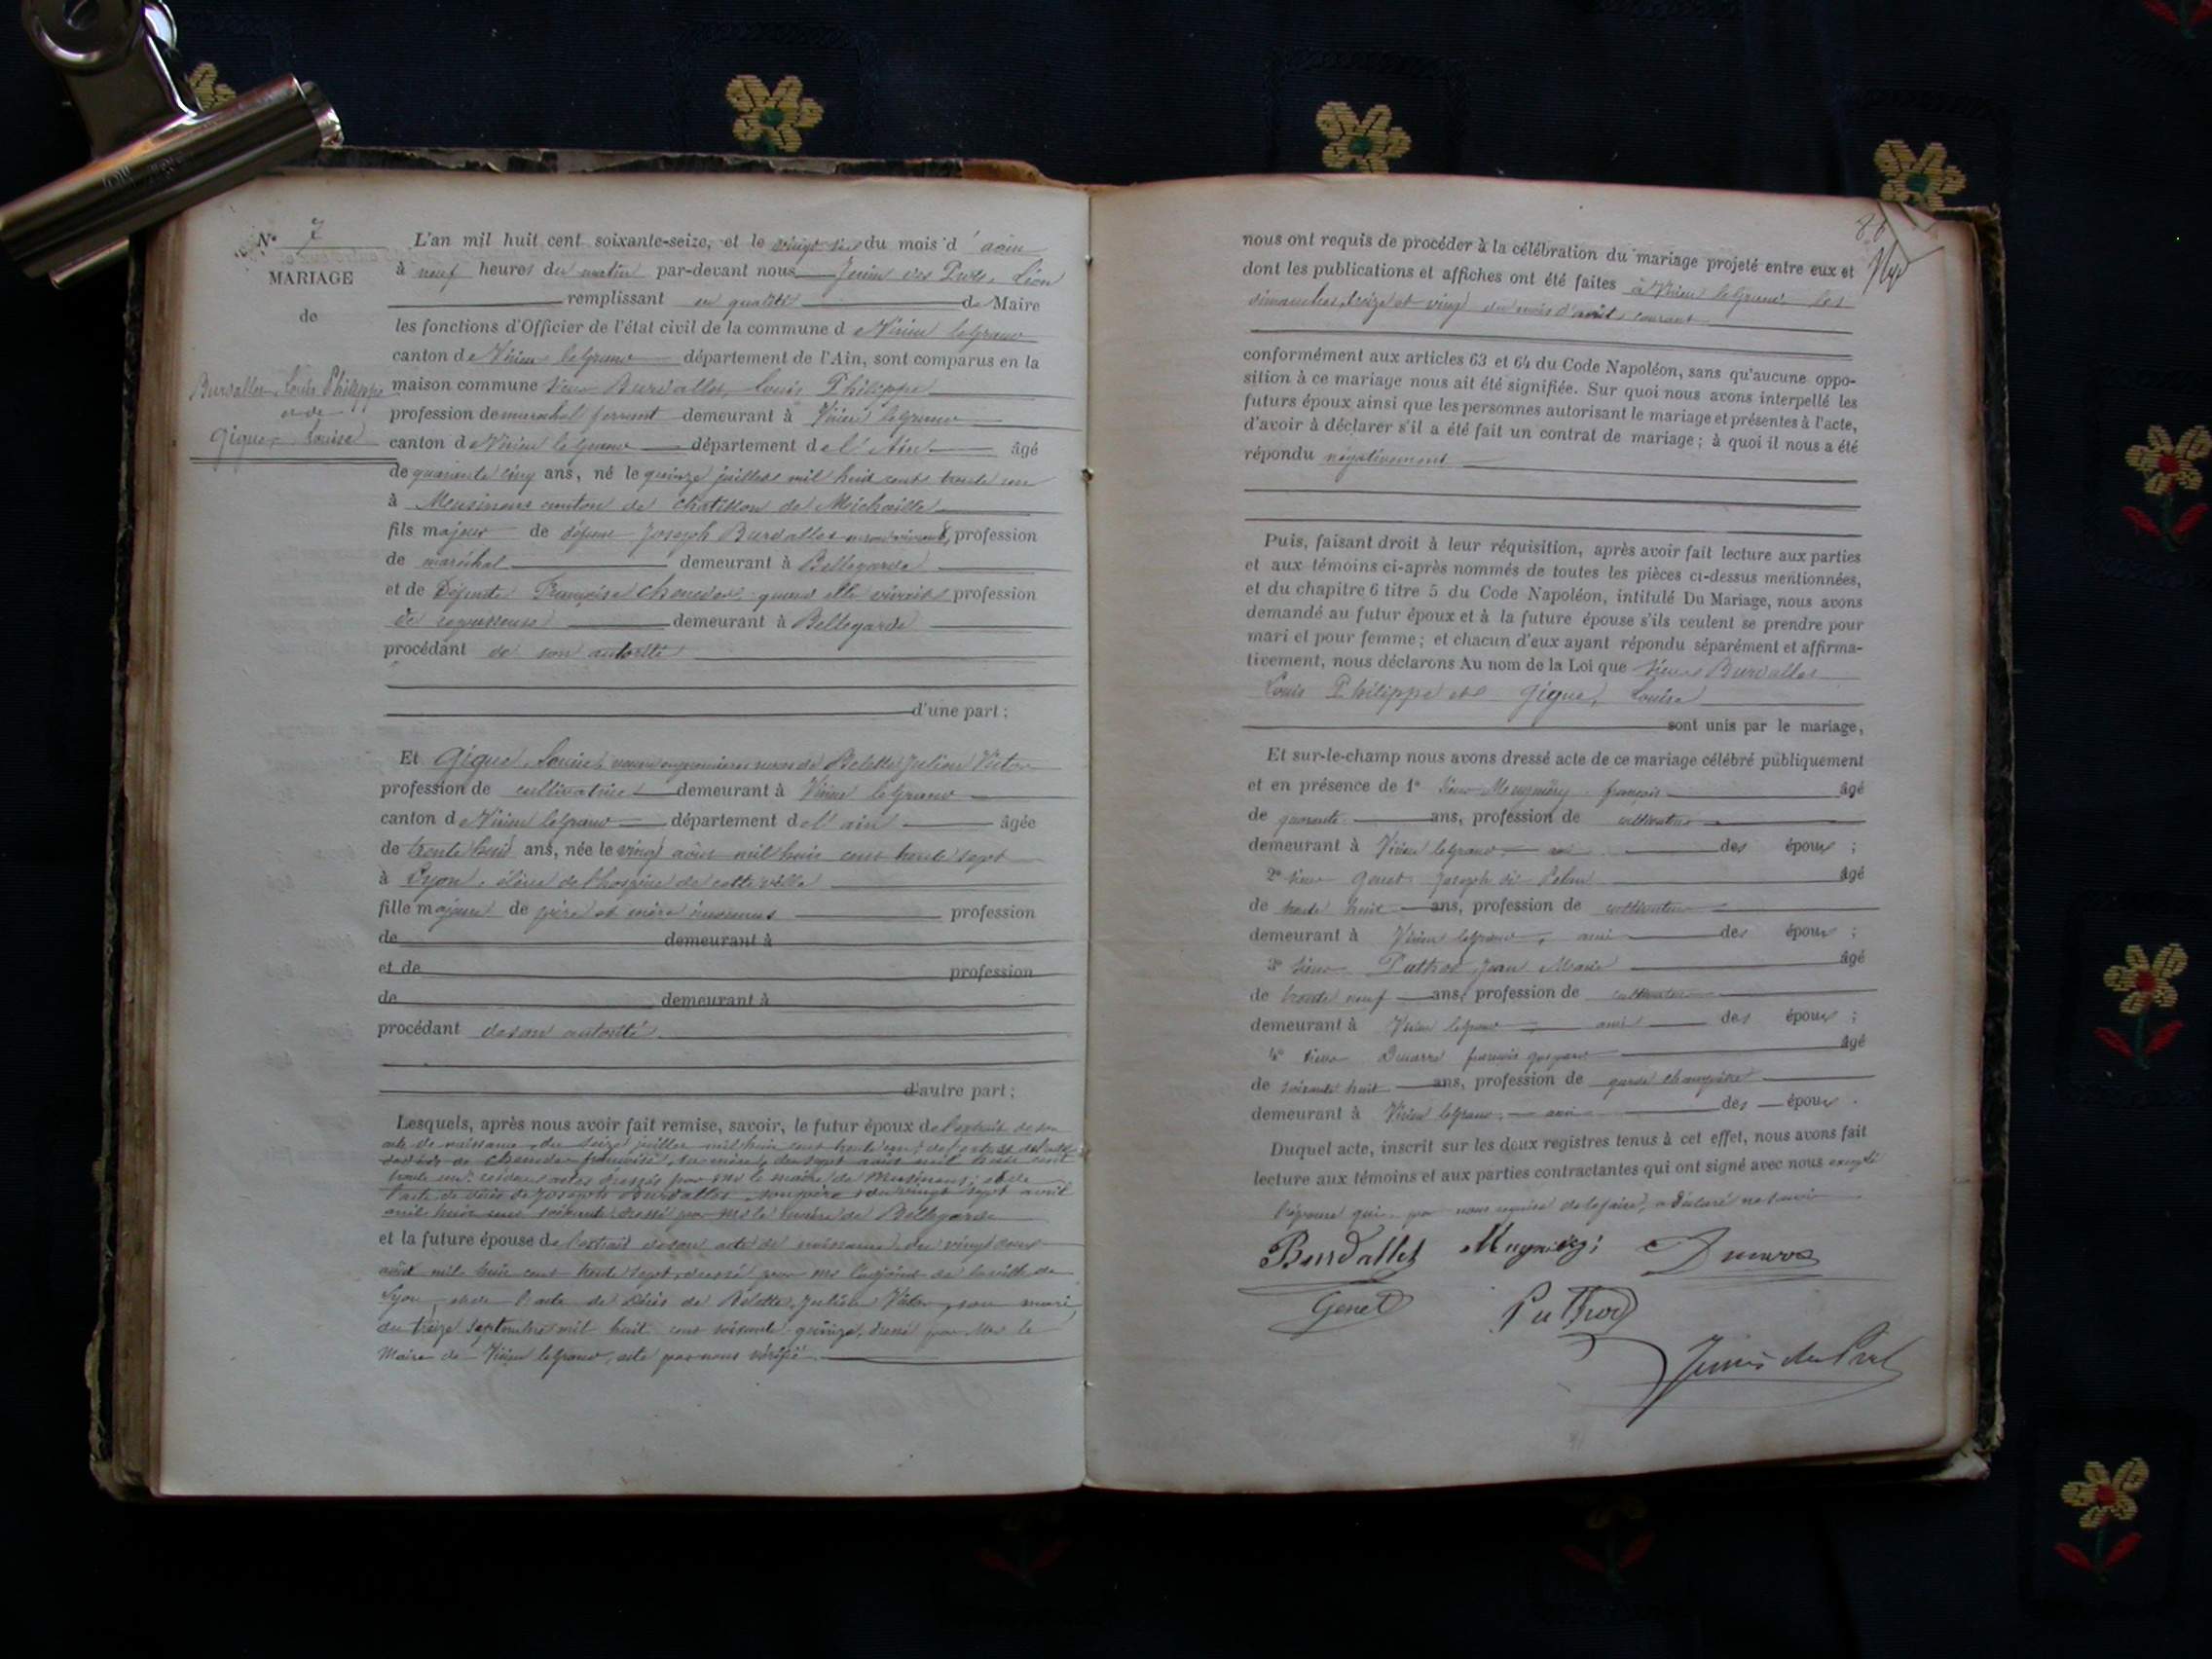 N° 7
MARIAGE
de
Burdallet Louis Philippe
et de
Gigue, Louise
L'an mil huit cent soixante-seize, et le vingt six du mois d'août
à neuf heures du matin par-devant nous Jenin des Prots, Léon
remplissant en qualité de Maire
les fonctions d'Officier de l'état civil de la commune de Virieu le Grand
canton de Virieu le Grand département de l'Ain, sont comparus en la
maison commune sieur Burdallet, Louis Philippe
profession de maréchal ferrant demeurant à Virieu le Grand
canton de Virieu le Grand département de l'Ain âgé
de quarante cinq ans, né le quinze juillet mil huit cent trente un
à Musinens canton de Chatillon de Michaille
fils majeur de défunt Joseph Burdallet en son vivant, profession
de maréchal demeurant à Bellegarde
et de Défunte Françoise quand elle vivait profession
de repasseuse demeurant à Bellegarde
procédant de son autorité
d'une part ;
Et Gigue, Louise, veuve en premières noces de Belotte Julien Victor
profession de cultivatrice demeurant à Virieu le Grand
canton de Virieu le Grand département de l'ain âgée
de trente huit ans, née le vingt août mil huit cent trente sept
à Lyon, élève de l'hospice de cette ville
fille majeure de père et mère inconnus profession
de demeurant à
et de profession
de demeurant à
procédant de son autorité
d'autre part ;
Lesquels, après nous avoir fait remise, savoir, le futur époux de l'extrait de son
acte de naissance, du seize juillet mil huit cent trente un; de l'extrait de l'acte
de décès de françoise, sa mère, du sept août mil huit cent
trente un; ces deux actes dressés par Mr le maire de Musinens; et de
l'acte de décès de Joseph Burdallet, son père, du vingt sept avril
mil huit cent soixante dressé par Mr le maire de Bellegarde
et la future épouse de l'extrait de son acte de naissance, du vingt deux
août mil huit cent trente sept, dressé par Mr l'adjoint de la ville de
Lyon, et de l'acte de décès de Belotte, Julien Victor, son mari,
du treize septembre mil huit cent soixante quinze, dressé par Mr le
Maire de Virieu le Grand, acte par nous vérifié
88
nous ont requis de procéder à la célébration du mariage projeté entre eux et
dont les publications et affiches ont été faites à Virieu le Grand les
dimanches, treize et vingt du mois d'août courant
conformément aux articles 63 et 64 du Code Napoléon, sans qu'aucune oppo-
sition à ce mariage nous ait été signifiée. Sur quoi nous avons interpellé les
futurs époux ainsi que les personnes autorisant le mariage et présentes à l'acte,
d'avoir à déclarer s'il a été fait un contrat de mariage ; à quoi il nous a été
répondu négativement
Puis, faisant droit à leur réquisition, après avoir fait lecture aux parties
et aux témoins ci-après nommés de toutes les pièces ci-dessus mentionnées,
et du chapitre 6 titre 5 du Code Napoléon, intitulé Du Mariage, nous avons
demandé au futur époux et à la future épouse s'ils veulent se prendre pour
mari et pour femme ; et chacun d'eux ayant répondu séparément et affirma-
tivement, nous déclarons Au nom de la Loi que sieur Burdallet
Louis Philippe et Gigue, Louise
sont unis par le mariage,
Et sur-le-champ nous avons dressé acte de ce mariage célébré publiquement
et en présence de 1° sieur françois âgé
de quarante ans, profession de cultivateur
demeurant à Virieu le Grand, ami des époux ;
2° sieur Genet Joseph dit âgé
de trente huit ans, profession de cultivateur
demeurant à Virieu le Grand, ami des époux ;
3° sieur Puthod Jean Marie âgé
de trente neuf ans, profession de cultivateur
demeurant à Virieu le Grand ami des époux ;
4° sieur françois gaspard âgé
de soixante huit ans, profession de garde champêtre
demeurant à Virieu le Grand, ami des époux.
Duquel acte, inscrit sur les doux registres tenus à cet effet, nous avons fait
lecture aux témoins et aux parties contractantes qui ont signé avec nous excepté
l'épouse qui, par nous requise de le faire, a déclaré ne savoir
Burdallet
Genet Puthod